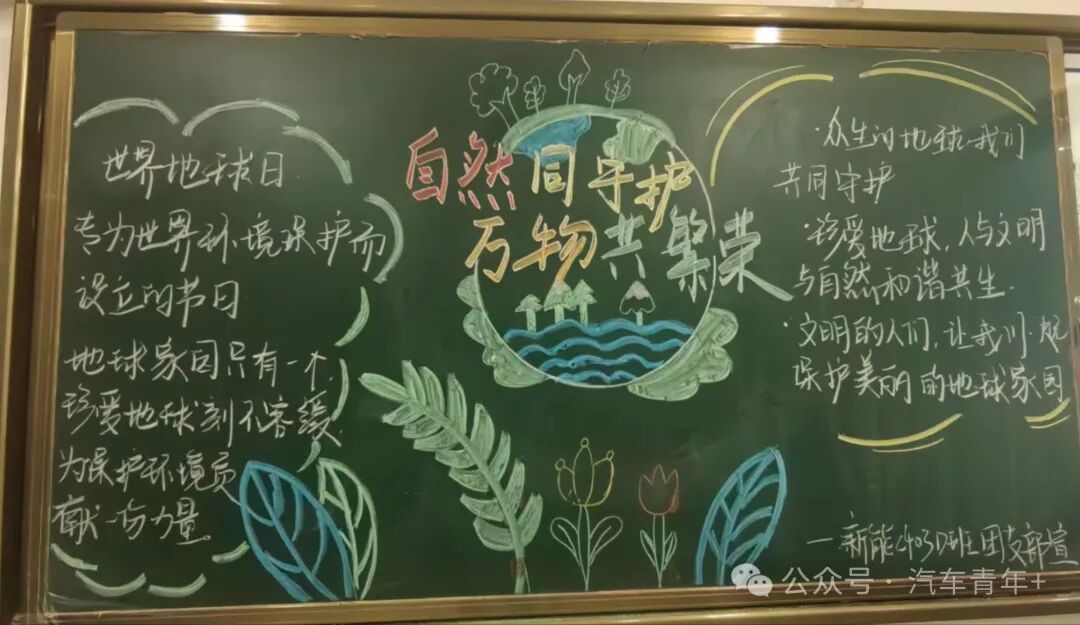 世界地球日
专为世界环境保护而
设立的节日
地球家园只有一个,
珍爱地球刻不容缓.
为保护环境贡
献一份力量
自然同守护
万物共繁荣
·众生的地球·我们
共同守护
·珍爱地球,人与文明
与自然和谐共生.
·文明的人们,让我们一起
保护美丽的地球家园
—新能2403D班团支部宣
公众号·汽车青年+